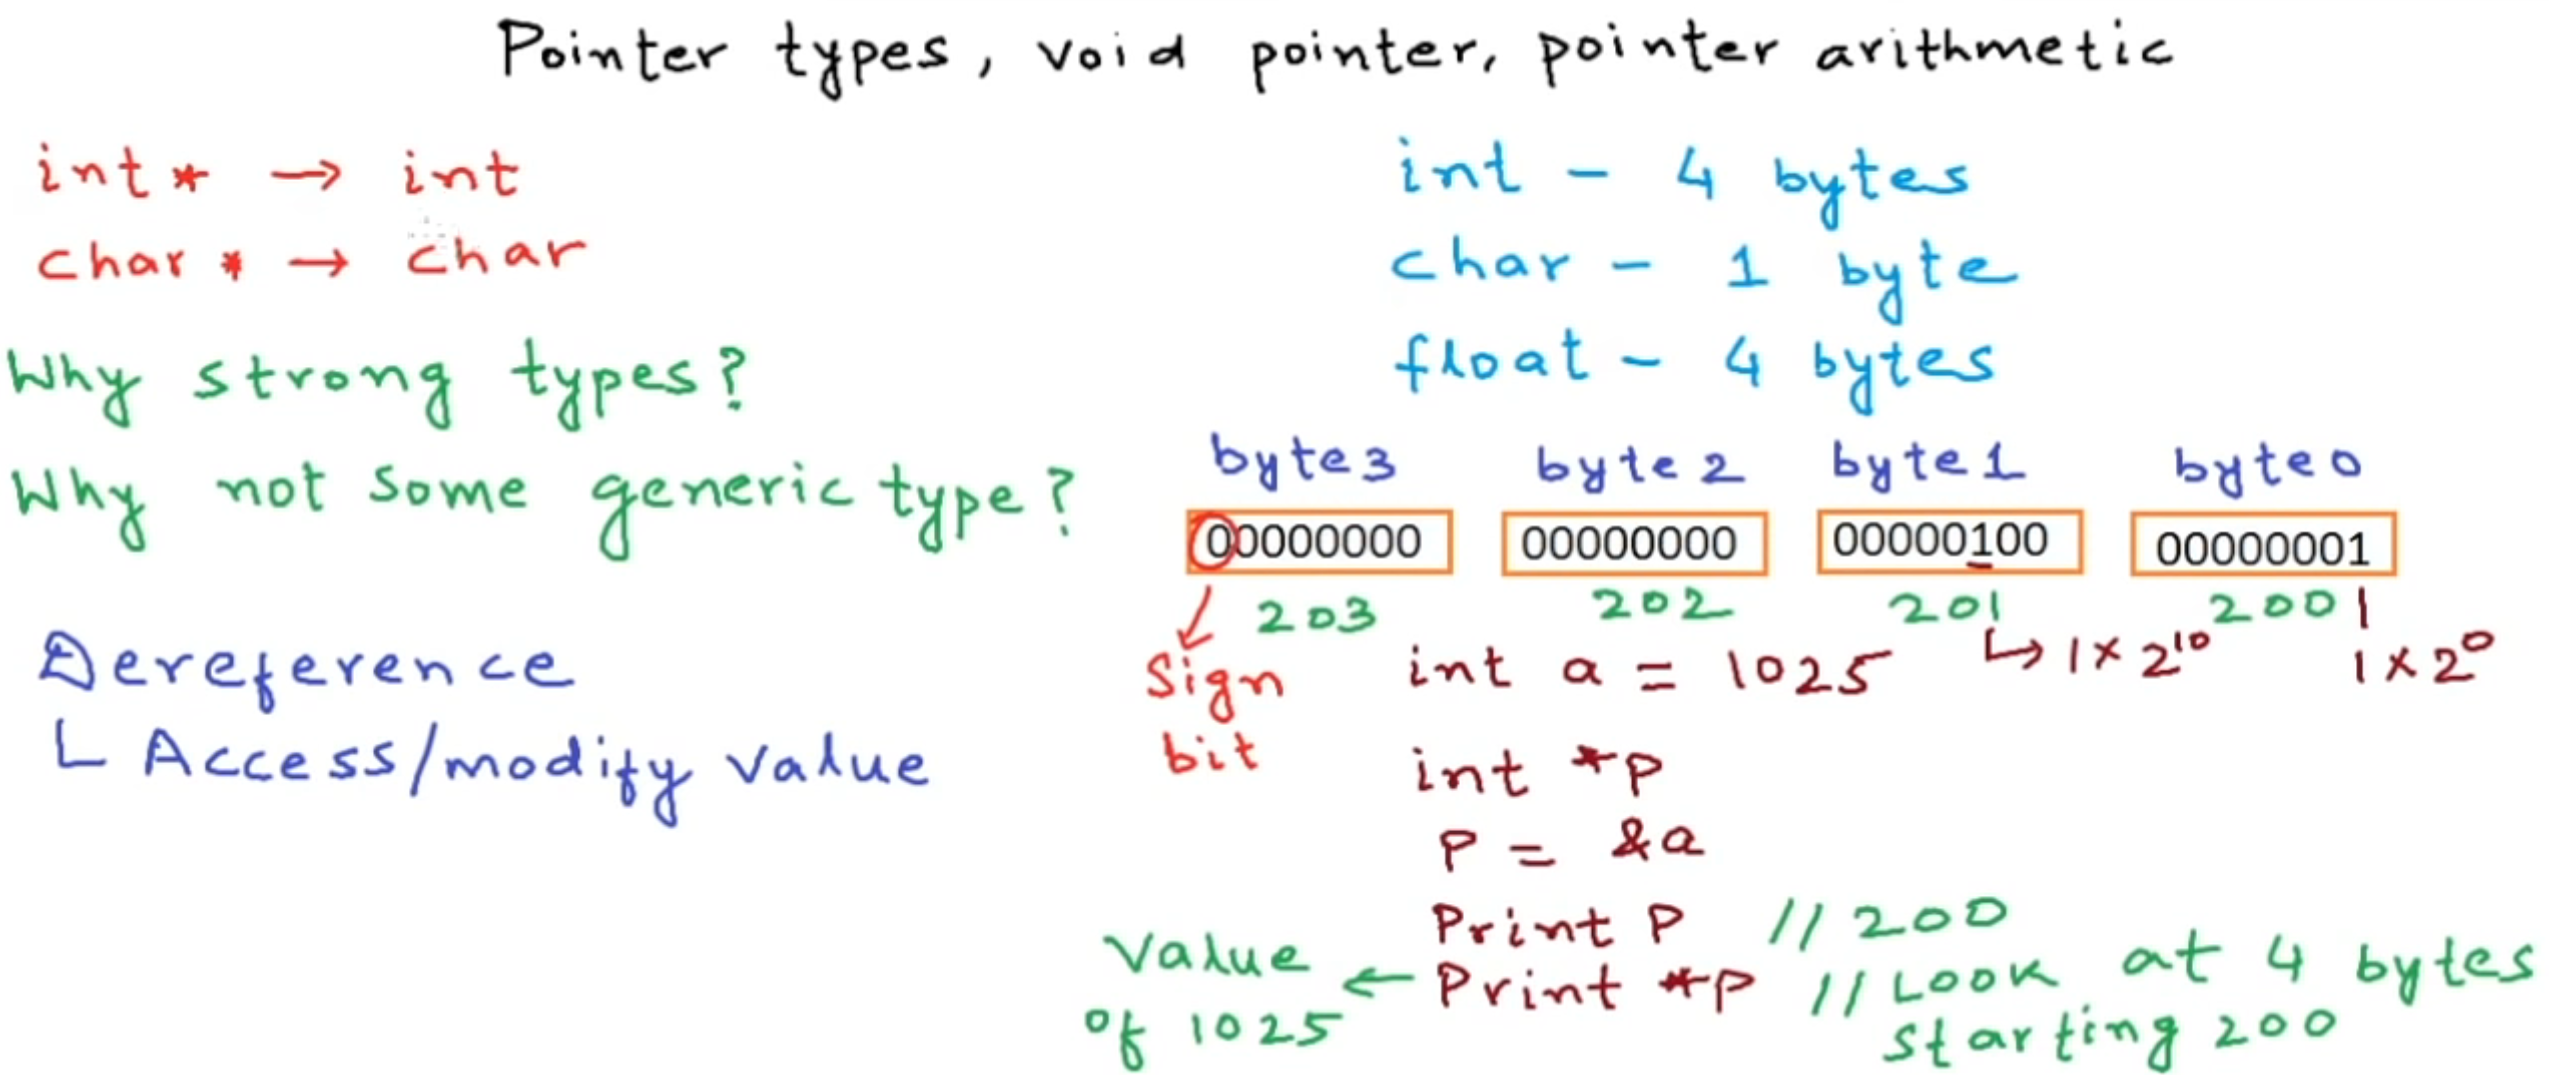 Pointer types, void pointer, pointer arithmetic
int * → int
char * → char
Why strong types?
Why not some generic type?
Dereference
Access/modify value
int - 4 bytes
char - 1 byte
float - 4 bytes
byte3 byte2 byte1 byte0
00000000 00000000 00000100 00000001
203 202 201 200
Sign bit
int a = 1025 ↳ 1 x 2¹⁰ 1 x 2⁰
int *p
P = &a
Print P // 200
Value of 1025 ← Print *p // Look at 4 bytes
starting 200